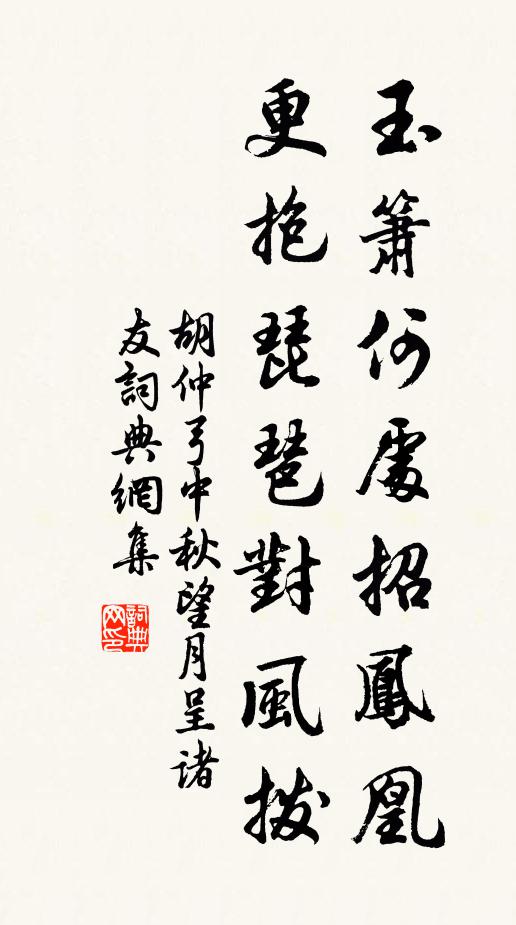 玉簫何處招鳳凰
更抱琵琶對風撥
胡仲弓中秋望月呈諸
友詞典網集
詞典
网印